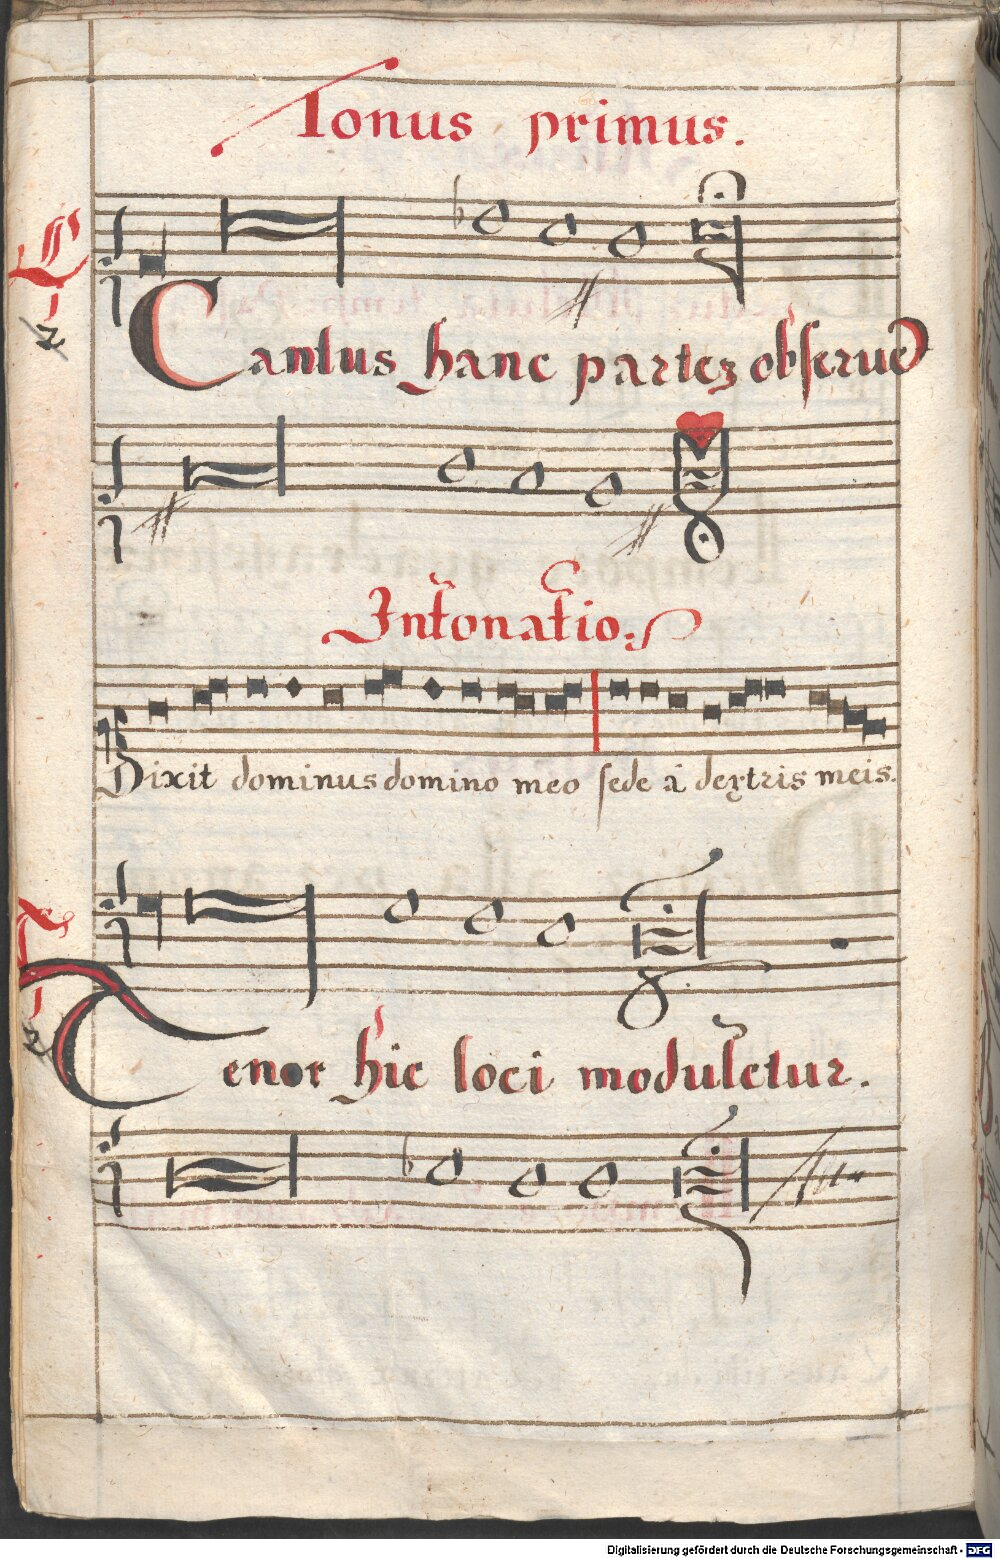 Tonus primus.
1
2
Cantus hanc partez obserued
Intonatio:
Dixit dominus domino meo sede a dextris meis.
1
2
Tenor hic loci moduletur.
Digitalisierung gefördert durch die Deutsche Forschungsgemeinschaft - DFG